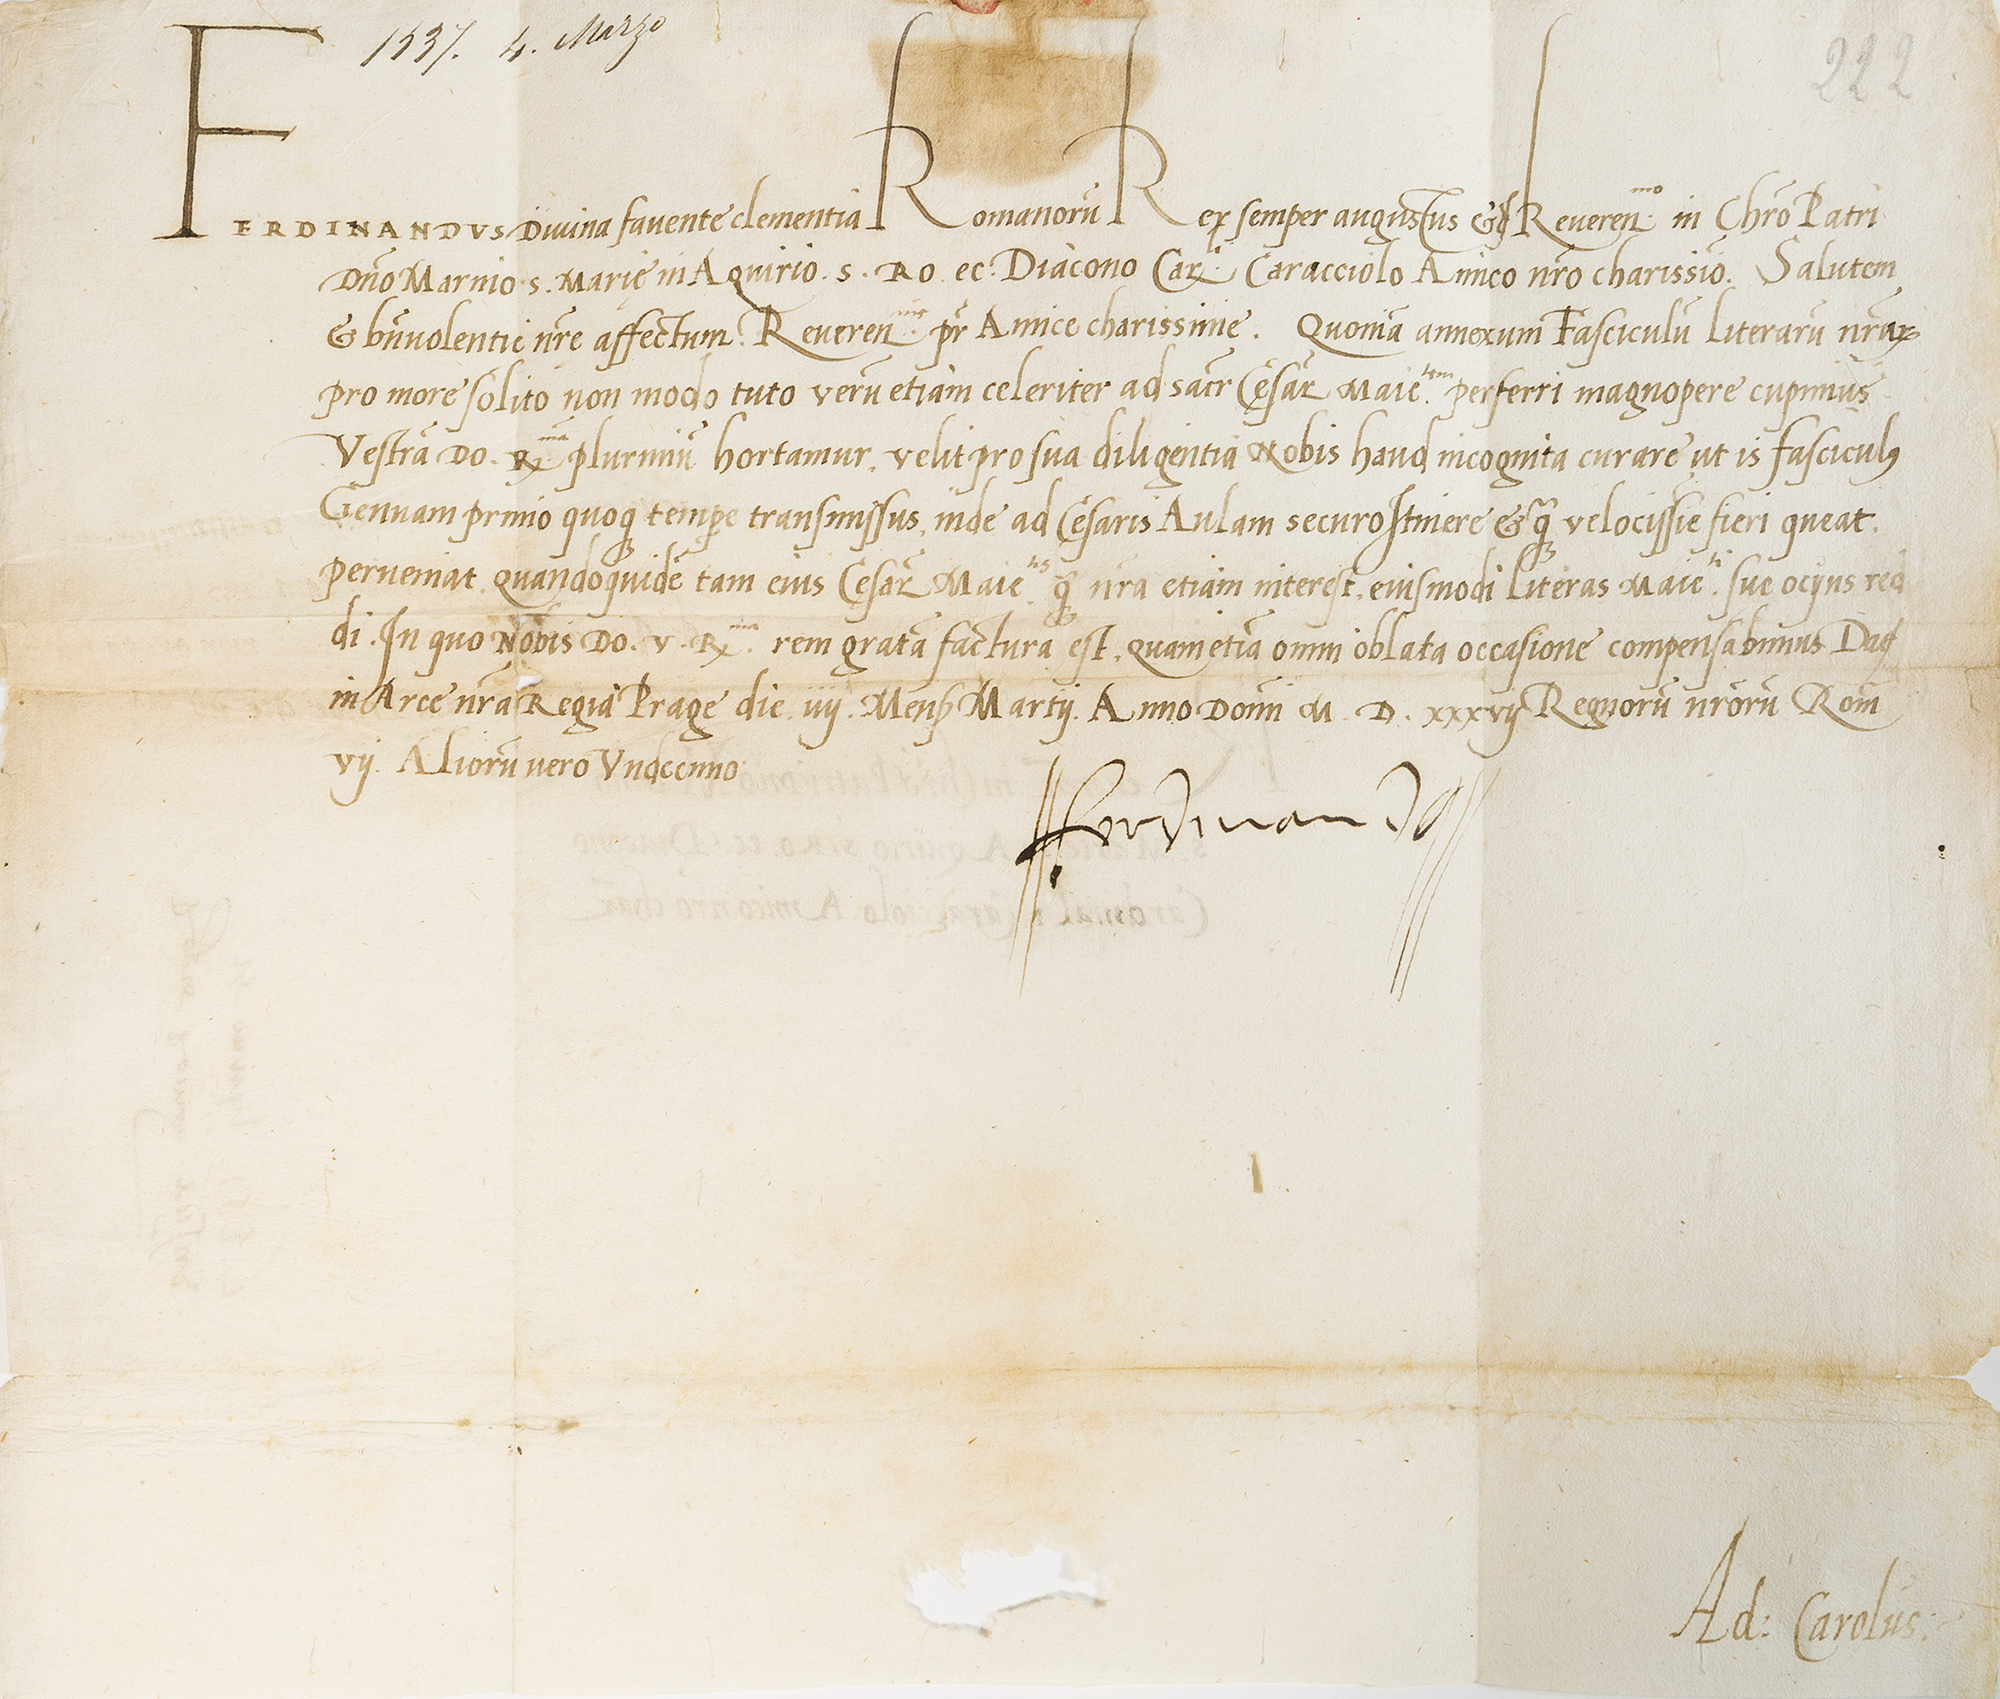 1537. 4. Marzo
222
FERDINANDVS Diuina fauente clementia Romanorū Rex semper augustus &c Reueren.mo in Chro Patri
Dño Marino. s. Marie in Aquirio. s. Ro. ec. Diacono Car.li Caracciolo Amico nr̃o charissīo. Salutem
& bn̄uolentie nr̃e affectum. Reueren.me pr̃ Amice charissime. Quoniā annexum Fasciculū literarū nr̃arꝝ
pro more solito non modo tuto verū etiam celeriter ad sacr̄ Cesar̄ Maie.tem perferri magnopere cupimus
Vestrā Do. R.ma plurimū hortamur, velit pro sua diligentia Nobis haud incognita curare ut is fasciculꝰ
Genuam primo quoqꝫ tempe transmissus, inde ad Cesaris Aulam securo Itinere & qꝫ velocissīe fieri queat.
perueniat. quandoquidē tam eius Cesar̄ Maie.tis qꝫ nr̃a etiam interest, eiusmodi literas Maie.ti sue ocyus red
di. In quo Nobis Do. V. R.ma rem gratā factura est, quam etiā omni oblata occasione compensabimus Dat̄
in Arce nr̃a Regia Prage die iiij. Mens̄ Martij. Anno Domi M. D. xxxvij Regnorū nr̃orū Rom̄
vij. Aliorū vero Vndecimo
Ferdinand
Ad: Carolus: